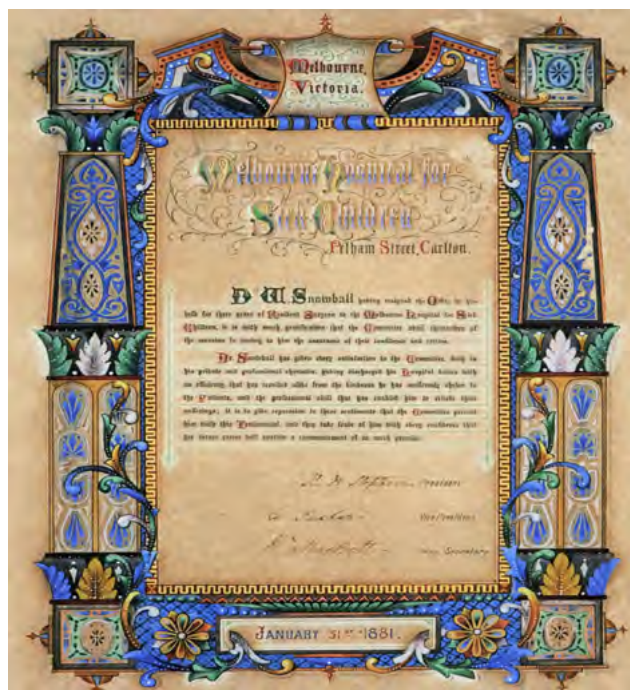 Melbourne,
Victoria.
Melbourne Hospital for
Sick Children
Pelham Street, Carlton.
Dr W. Snowball having resigned the Office he has
held for three years of Resident Surgeon to the Melbourne Hospital for Sick
Children, it is with much gratification that the Committee avail themselves of
the occasion to convey to him the assurance of their confidence and esteem.
Dr. Snowball has given every satisfaction to the Committee, both in
his private and professional character, having discharged his Hospital duties with
an efficiency that has resulted alike from the kindness he has uniformly shown to
the Patients, and the professional skill that has enabled him to relieve their
sufferings; it is to give expression to these sentiments that the Committee present
him with this Testimonial, and they take leave of him with every confidence that
his future career will a commencement of so much promise.
President
Vice President
Hon. Secretary
JANUARY 31ST 1881.